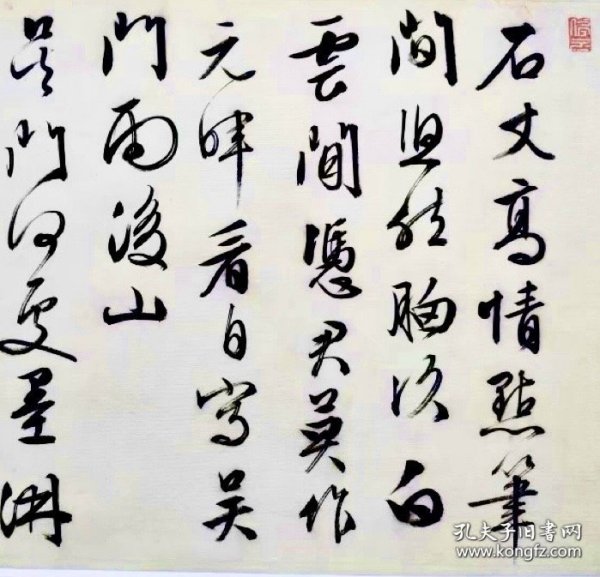 石丈高情點筆
間坦然胸次白
雲間憑君莫作
元暉看自寫吳
門雨後山
吳門何處墨淋
孔夫子旧书网
www.kongfz.com